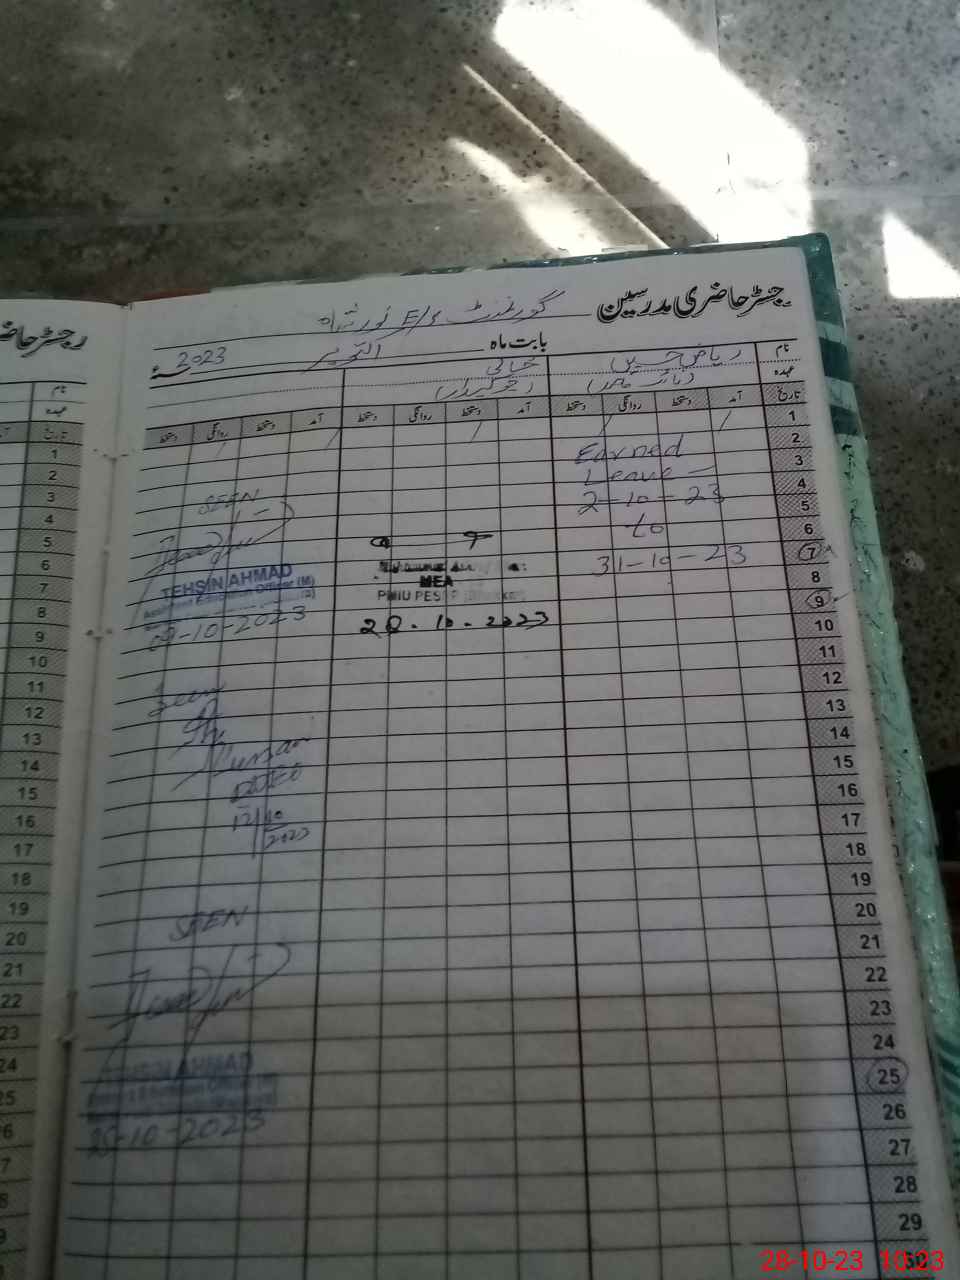 رجسٹر حاضری مدرسین
گورنمنٹ E/S نور شاہ
بابت ماہ اکتوبر 2023ء
نام ریاض حسین خالی
عہدہ (نائب قاصد) (چوکیدار)
تاریخ آمد دستخط روانگی دستخط آمد دستخط روانگی دستخط آمد دستخط روانگی دستخط
1
2
3
4
5
6
7
8
9
10
11
12
13
14
15
16
17
18
19
20
21
22
23
24
25
26
27
28
29
30
Earned
Leave
2-10-23
to
31-10-23
MEA
28.10.2023
SEEN
TEHSIN AHMAD
Assistant Education Officer (M)
09-10-2023
Seen
12/10
2023
SEEN
TEHSIN AHMAD
25-10-2023
نام
عہدہ
تاریخ
1
2
3
4
5
6
7
8
9
10
11
12
13
14
15
16
17
18
19
20
21
22
23
24
25
28-10-23 10:23